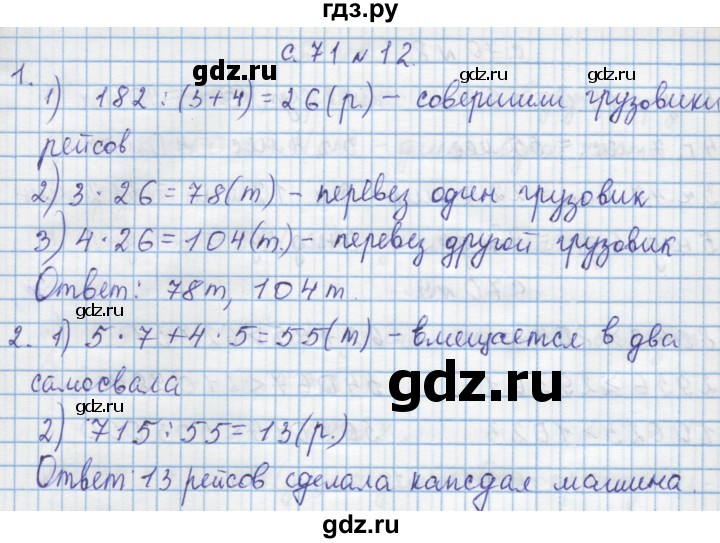 гдз.ру
с. 71 № 12.
gdz.ru
1.
1) 182 : (3+4) = 26 (р.) – совершили грузовики
рейсов
2) 3 · 26 = 78 (т) – перевез один грузовик
3) 4 · 26 = 104 (т.) – перевез другой грузовик
Ответ: 78 т, 104 т.
gdz.ru
2. 1) 5 · 7 + 4 · 5 = 55 (т) – вмещается в два
самосвала
gdz.ru
gdz.ru
2) 715 : 55 = 13 (р.)
Ответ: 13 рейсов сделала каждая машина.
gdz.ru